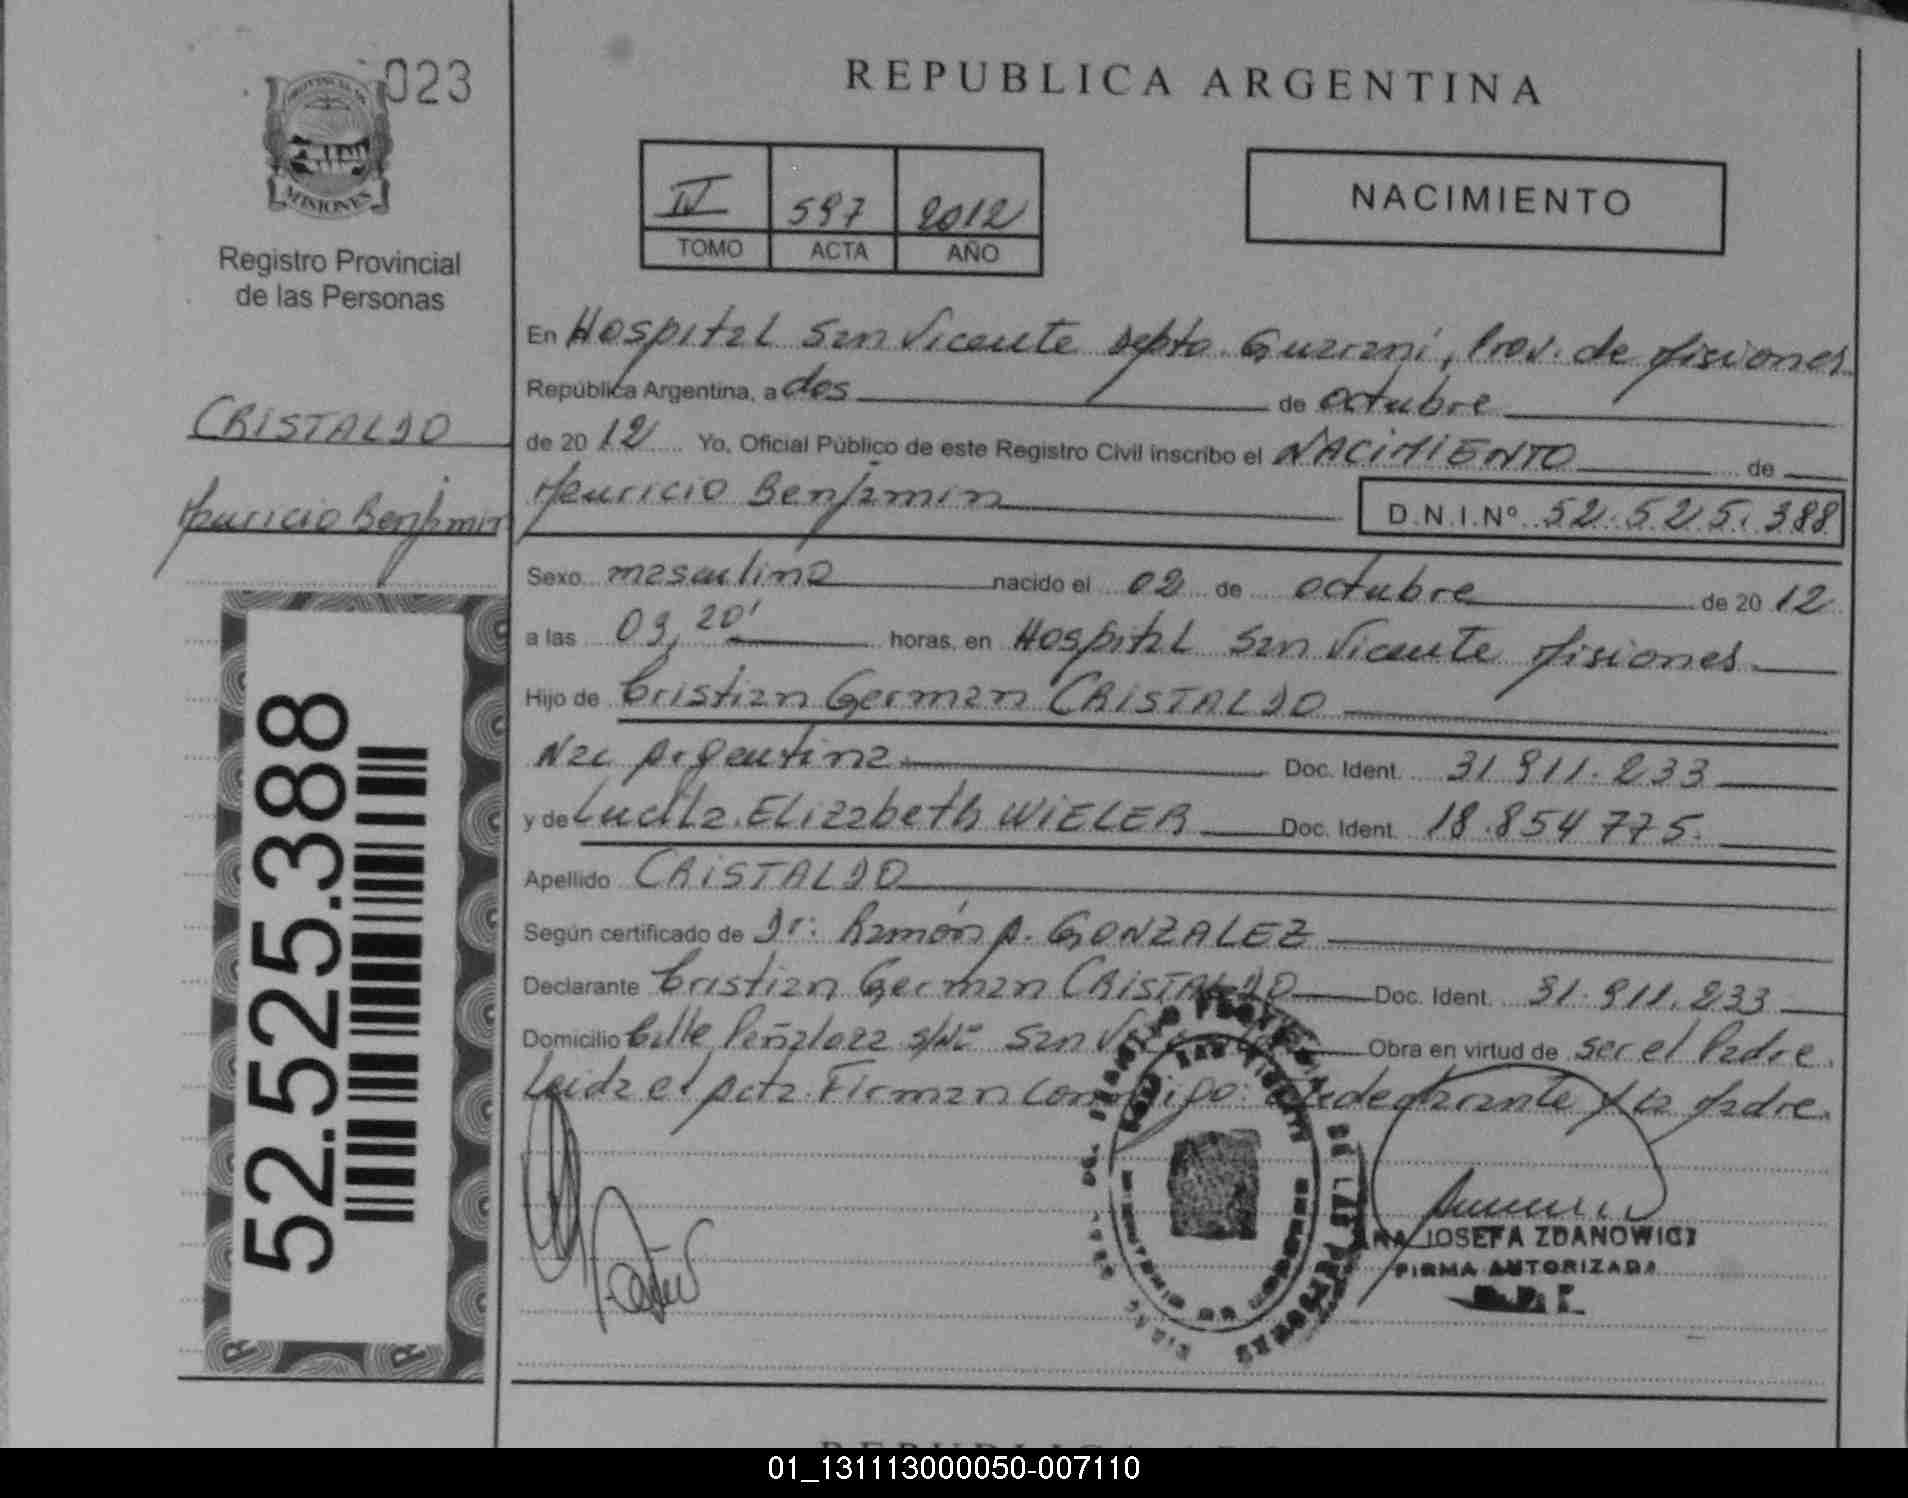 023
PROVINCIA DE
MISIONES
Registro Provincial
de las Personas
CRISTALDO
Mauricio Benjamin
52.525.388
REPUBLICA ARGENTINA
IV 597 2012
TOMO ACTA AÑO
NACIMIENTO
En Hospital San Vicente Depto. Guaraní, Prov. de Misiones
República Argentina, a dos de octubre
de 2012 Yo, Oficial Público de este Registro Civil inscribo el NACIMIENTO de
Mauricio Benjamin D.N.I.Nº 52.525.388
Sexo masculino nacido el 02 de octubre de 2012
a las 09,20' horas, en Hospital San Vicente Misiones
Hijo de Cristian German CRISTALDO
Nac Argentina Doc. Ident. 31 911.233
y de Lucila Elizabeth WIELER Doc. Ident. 18.854 775.
Apellido CRISTALDO
Según certificado de Dr: Ramón A. GONZALEZ
Declarante Cristian German CRISTALDO Doc. Ident. 31.911.233
Domicilio Calle Peñaloza s/Nº San Obra en virtud de ser el Padre.
Leida el Acta Firman conmigo: declarante y la Madre.
JOSEFA ZDANOWICZ
FIRMA AUTORIZADA
01_131113000050-007110